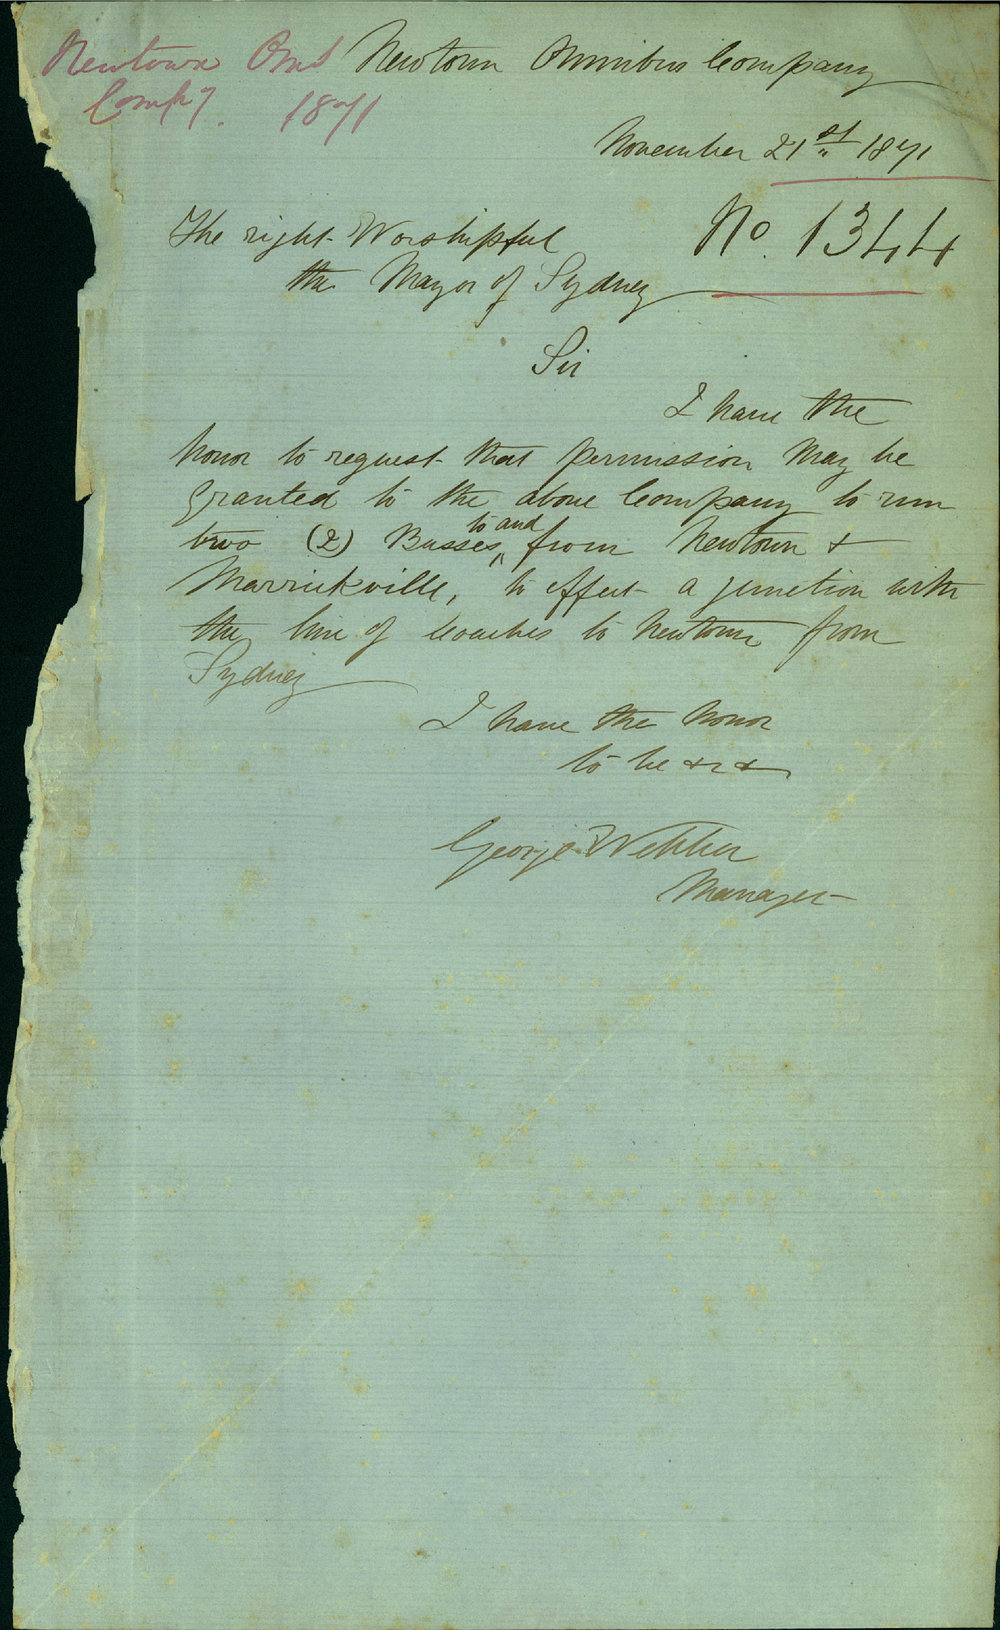 Newtown Omb Newtown Omnibus Company
Compy. 1871
November 21st 1871
No. 1344
The right Worshipful
the Mayor of Sydney
Sir
I have the
honor to request that permission may be
granted to the above Company to run
two (2) Busses to and from Newtown &
Marrickville, to effect a junction with
the line of Coaches to Newtown from
Sydney
I have the honor
to be &c &
George Webber
Manager